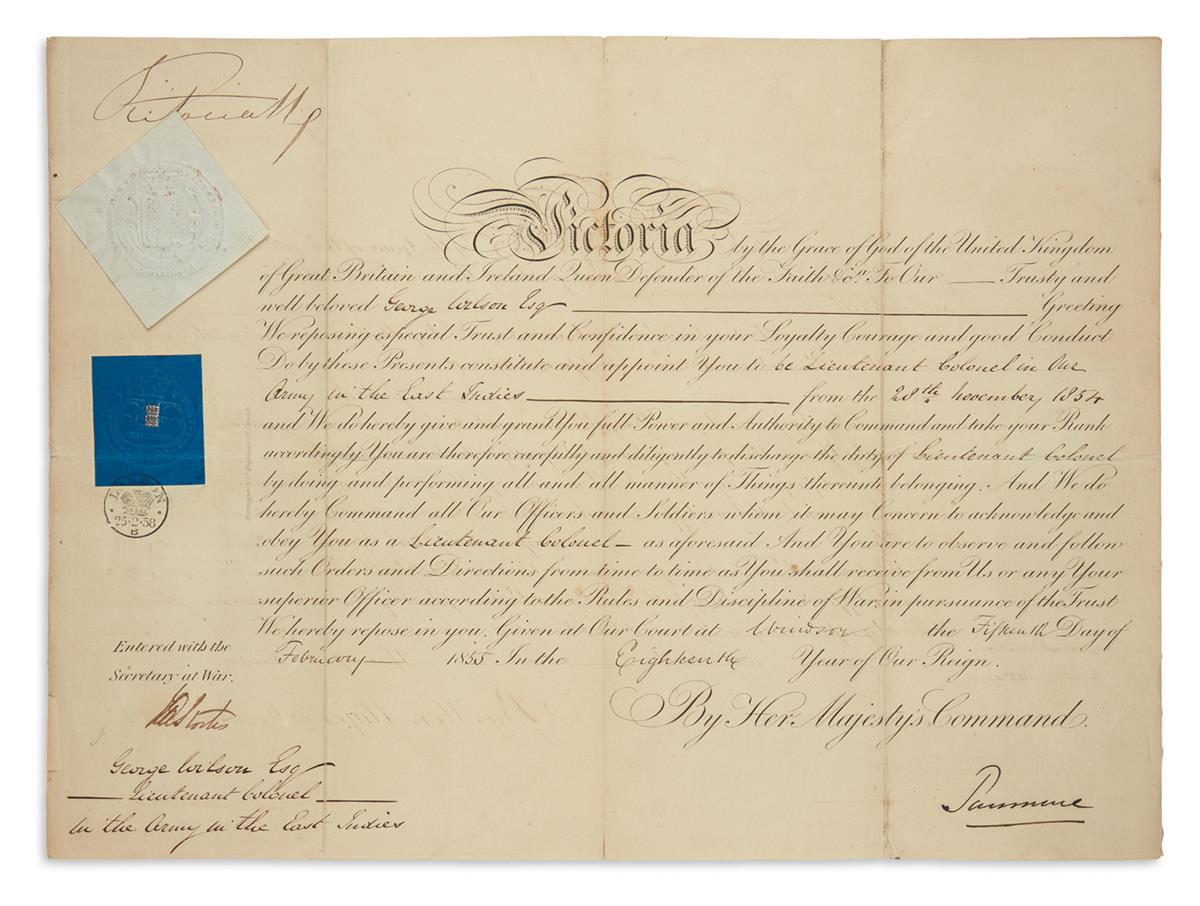 Victoria R
Victoria by the Grace of God of the United Kingdom
of Great Britain and Ireland Queen Defender of the Faith &c.a To Our — Trusty and
well beloved George Wilson Esq Greeting
We reposing especial Trust and Confidence in your Loyalty Courage and good Conduct
Do by these Presents constitute and appoint You to be Lieutenant Colonel in Our
Army in the East Indies from the 28th November 1854
and We do hereby give and grant You full Power and Authority to Command and take your Rank
accordingly You are therefore carefully and diligently to discharge the duty of Lieutenant Colonel
by doing and performing all and all manner of Things thereunto belonging. And We do
hereby Command all Our Officers and Soldiers whom it may Concern to acknowledge and
obey You as a Lieutenant Colonel — as aforesaid And You are to observe and follow
such Orders and Directions from time to time as You shall receive from Us or any Your
superior Officer according to the Rules and Discipline of War, in pursuance of the Trust
We hereby repose in you. Given at Our Court at Windsor the Fifteenth Day of
February 1855 In the Eighteenth Year of Our Reign.
By Her Majesty's Command.
Panmure
LONDON
25·2·58
B
Entered with the
Secretary at War.
George Wilson Esq
— Lieutenant Colonel —
in the Army in the East Indies